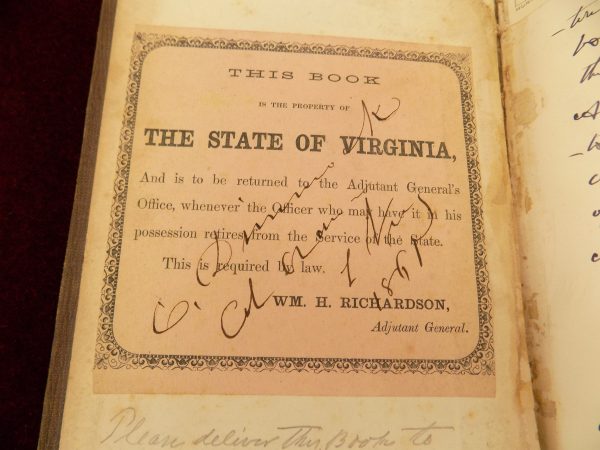 THIS BOOK
IS THE PROPERTY OF
THE STATE OF VIRGINIA,
And is to be returned to the Adjutant General's
Office, whenever the Officer who may have it in his
possession retires from the Service of the State.
This is required by law.
WM. H. RICHARDSON,
Adjutant General.
1861
Please deliver this Book to